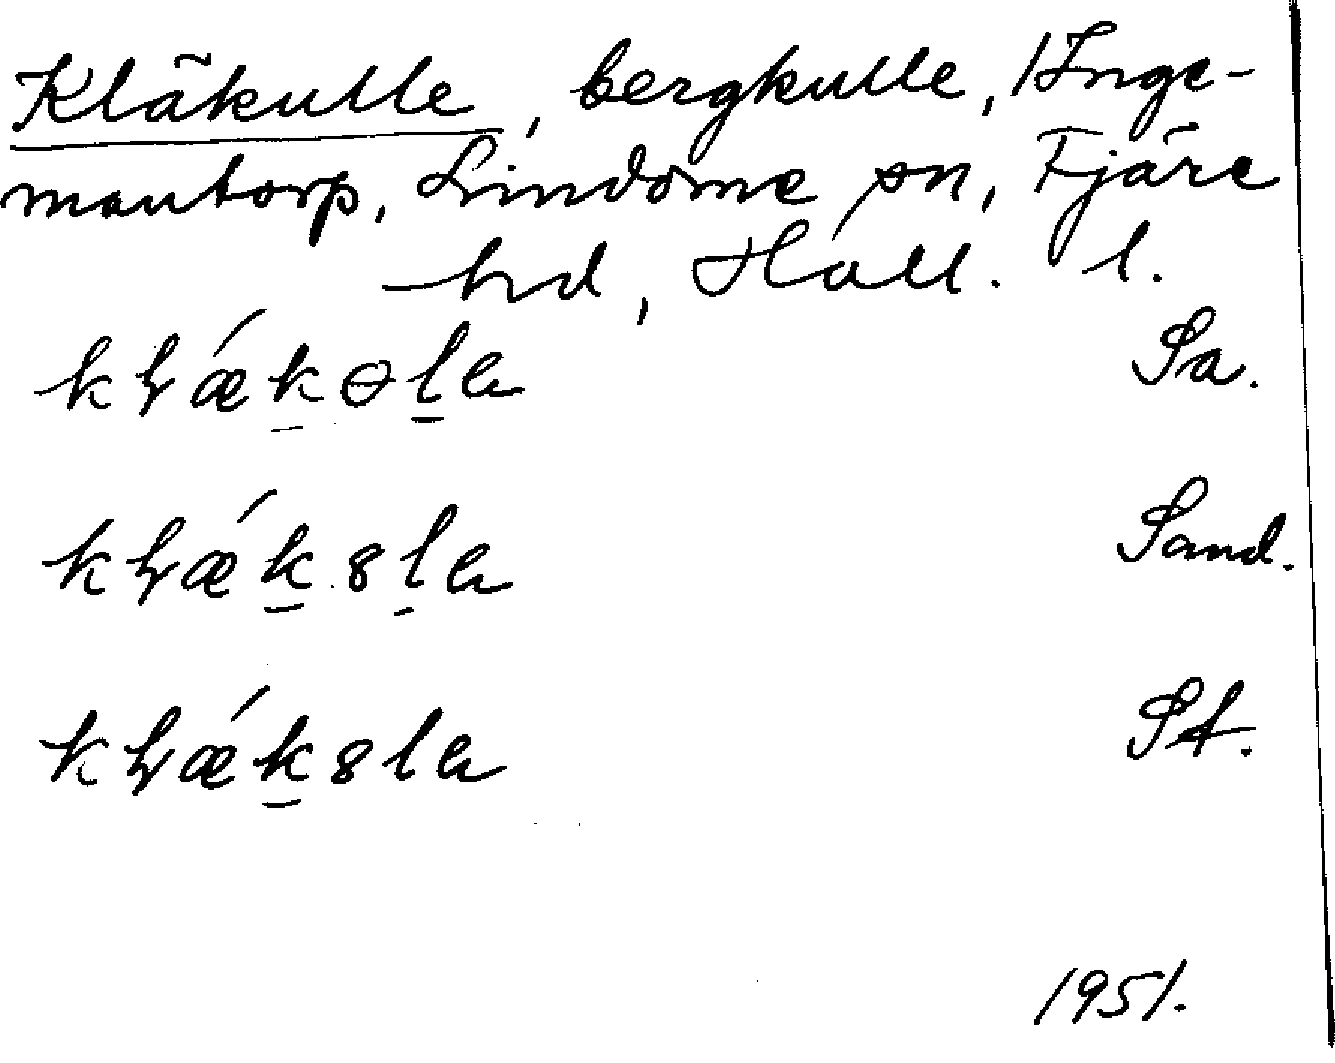 Kläkulle, bergkulle, 1 Inge-
mantorp, Lindome sn, Fjäre
hd, Hall. l.
kɽǽkɵla Sa.
kɽǽk8la Sand.
kɽǽk8la St.
1951.